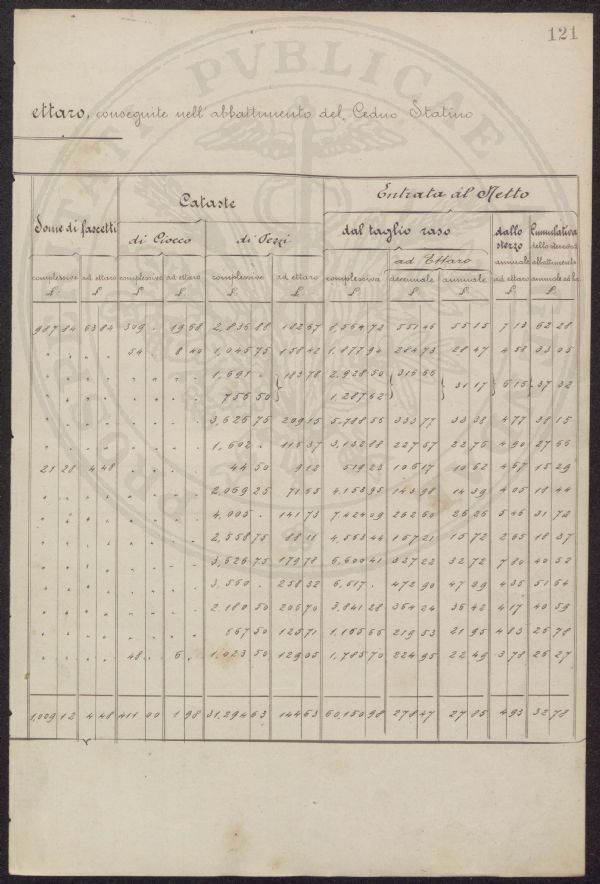 121
PVBLICAE
ettaro, conseguite nell'abbattimento del Ceduo Statino
Cataste
Entrata al Netto
Some di fascetti
di Ciocco
di Pezzi
dal taglio raso
dallo sterzo
Cumulativa
ad Ettaro
annuale
abbattimento
complessive ad ettaro complessive ad ettaro complessive ad ettaro complessiva decennale annuale ad ettaro
£ £ £ £ £ £ £ £ £ £ £
987 84 63 84 309 . 19 68 2,836 88 182 67 8,564 72 551 46 55 15 7 13 62 28
" " " " 54 8 40 1,045 75 158 42 1.877 94 284 73 28 47 4 58 33 05
" " " " " " " " 1,691 . 183 78 2,928 50 316 66
31 17 6 15 37 32
756 50 1.287 62
3,626 75 209 15 5.788 56 333 77 33 38 4 77 38 15
1,602 . 116 37 3,132 88 227 57 22 76 4 90 27 66
21 28 4 48 44 50 9 12 519 23 106 17 10 62 4 67 15 29
2,069 25 71 65 4.153 95 143 98 14 39 4 05 18 44
4,005 . 141 73 7,424 09 262 60 26 26 5 46 31 72
2,558 75 88 11 4,563 44 157 21 15 72 2 65 18 37
3,626 75 179 78 6,600 41 327 22 32 72 7 80 40 52
3,560 . 258 32 6,517 . 472 90 47 29 4 35 51 64
2.180 50 206 70 3,841 28 364 24 36 42 4 17 40 59
667 50 125 71 1,165 66 219 53 21 95 4 83 26 78
48 . 6 . 1,023 50 129 05 1,785 70 224 95 22 49 3 78 26 27
1,009 12 4 48 411 00 1 98 31,294 63 144 63 60,150 98 278 47 27 85 4 93 32 78